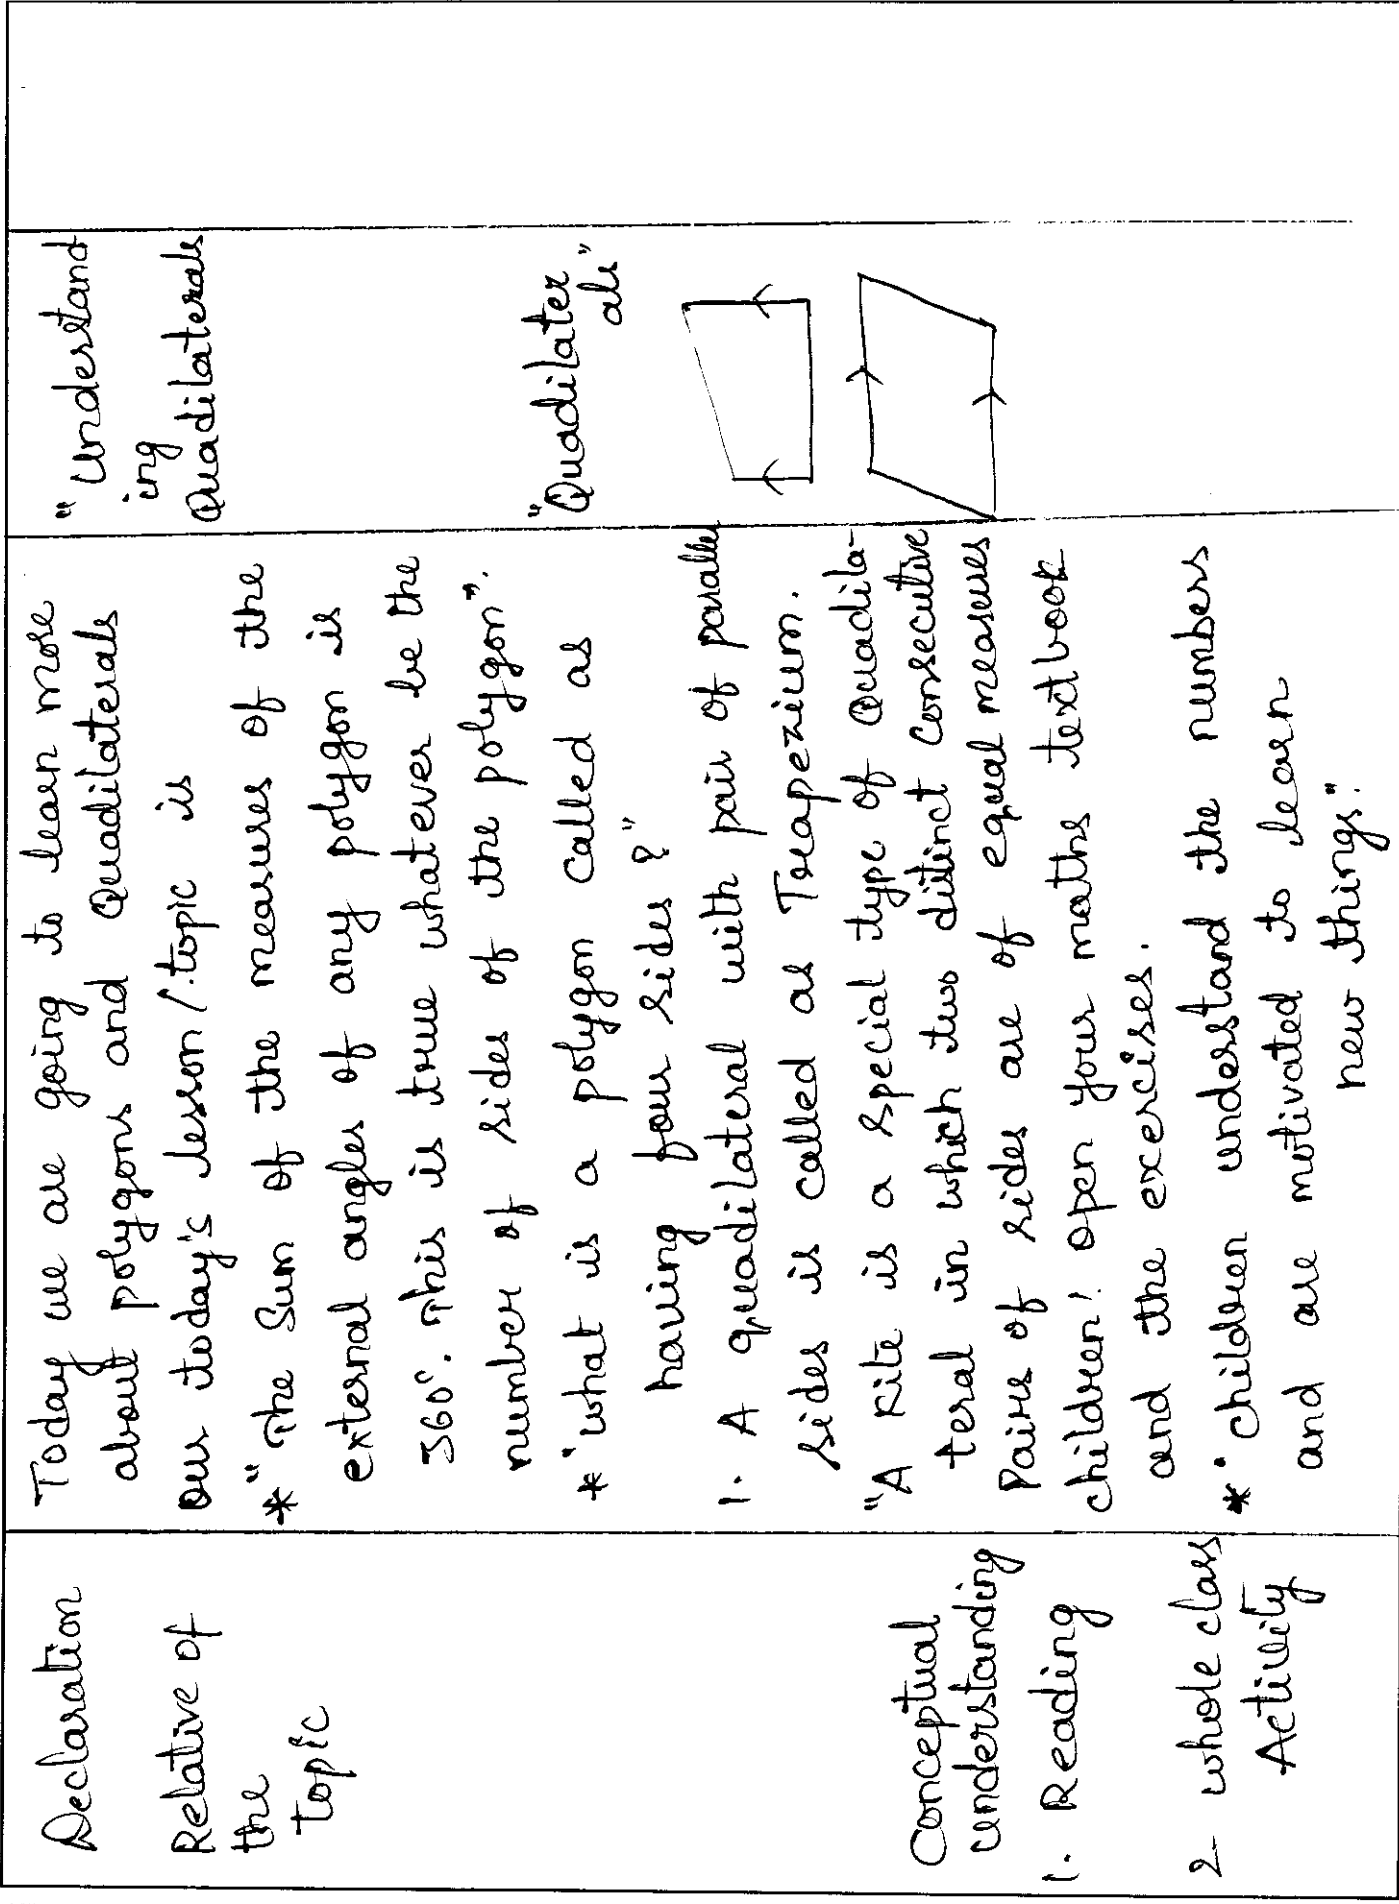 Declaration
Relative of
the
topic
Conceptual
understanding
1. Reading
2- whole class
Activity
Today we are going to learn more
about polygons and Quadilaterals
our today's lesson/topic is
*"The Sum of the measures of the
external angles of any polygon is
360°. This is true whatever be the
number of sides of the polygon".
*"what is a polygon called as
having four sides?"
1. A quadilateral with pair of parallel
sides is called as Trapezium.
"A kite is a special type of Quadila-
teral in which two distinct consecutive
Pairs of sides are of equal measures
children! open your maths textbook
and the exercises.
*"children understand the numbers
and are motivated to learn
new things."
"Understand
ing
Quadilaterals
"Quadilater
als"